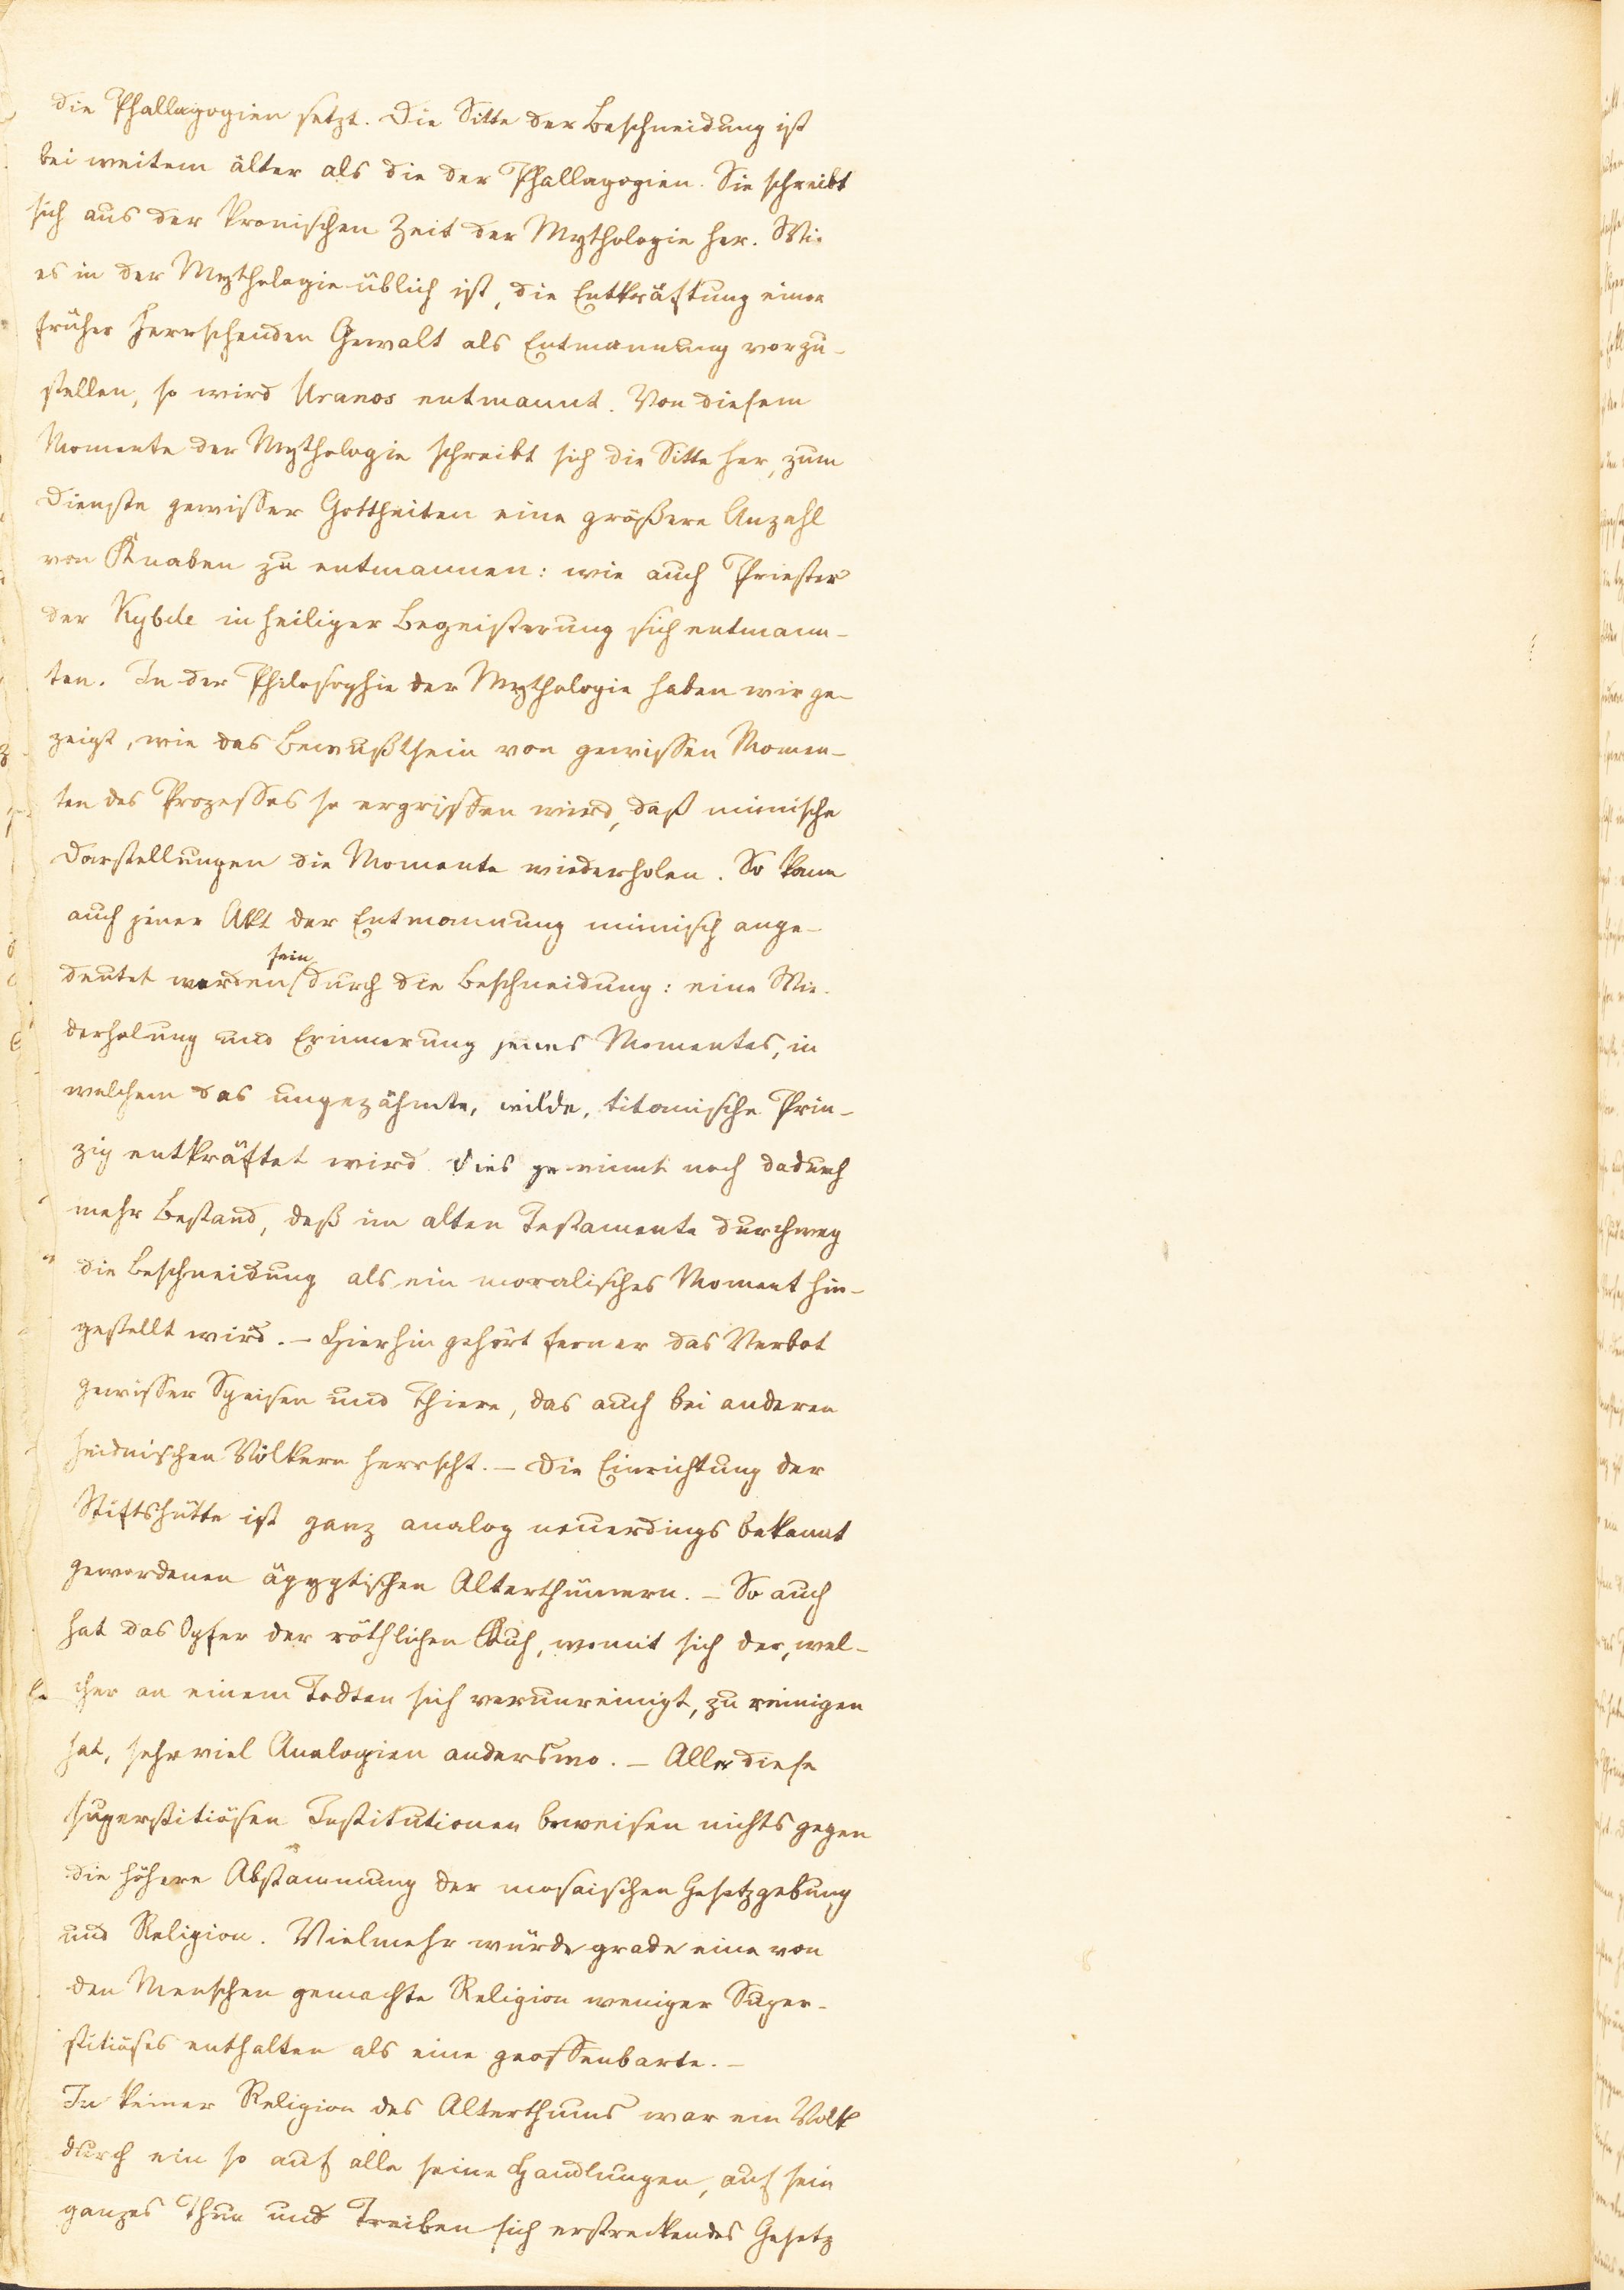 die Phallagogien setzt. Die Sitte der Beschneidung ist
bei weitem älter als die der Phallagogien. Sie schreibt
sich aus der Kronischen Zeit der Mythologie her. Wie
es in der Mythologie üblich ist, die Entkräftung einer
früher herrschenden Gewalt als Entmannung vorzu-
stellen, so wird Uranos entmannt. Von diesem
Momente der Mythologie schreibt sich die Sitte her, zum
Dienste gewisser Gottheiten eine größere Anzahl
von Knaben zu entmannen: wie auch Priester
der Kybele in heiliger Begeisterung sich entmann-
ten. In der Philosophie der Mythologie haben wir ge-
zeigt, wie das Bewußtsein von gewissen Momen-
ten des Prozesses so ergriffen wird, daß mimische
Darstellungen die Momente wiederholen. So kann
auch jener Akt der Entmannung mimisch ange-
deutet worden sein durch die Beschneidung: eine Wie-
derholung und Erinnerung jenes Momentes, in
welchem das ungezähmte, wilde, titanische Prin-
zip entkräftet wird. Dies gewinnt noch dadurch
mehr Bestand, daß im alten Testamente durchweg
die Beschneidung als ein moralisches Moment hin-
gestellt wird. – Hierhin gehört ferner das Verbot
gewisser Speisen und Thiere, das auch bei anderen
heidnischen Völkern herrscht. – Die Einrichtung der
Stiftshütte ist ganz analog neuerdings bekannt
gewordenen ägyptischen Alterthümern. – So auch
hat das Opfer der röthlichen Kuh, womit sich der, wel-
cher an einem Todten sich verunreinigt, zu reinigen
hat, sehr viel Analogien anderswo. – Alle diese
superstitiösen Institutionen beweisen nichts gegen
die höhere Abstammung der mosaischen Gesetzgebung
und Religion. Vielmehr würde grade eine von
den Menschen gemachte Religion weniger Super-
stitiöses enthalten als eine geoffenbarte. –
In keiner Religion des Alterthums war ein Volk
durch ein so auf alle seine Handlungen, auf sein
ganzes Thun und Treiben sich erstreckendes Gesetz